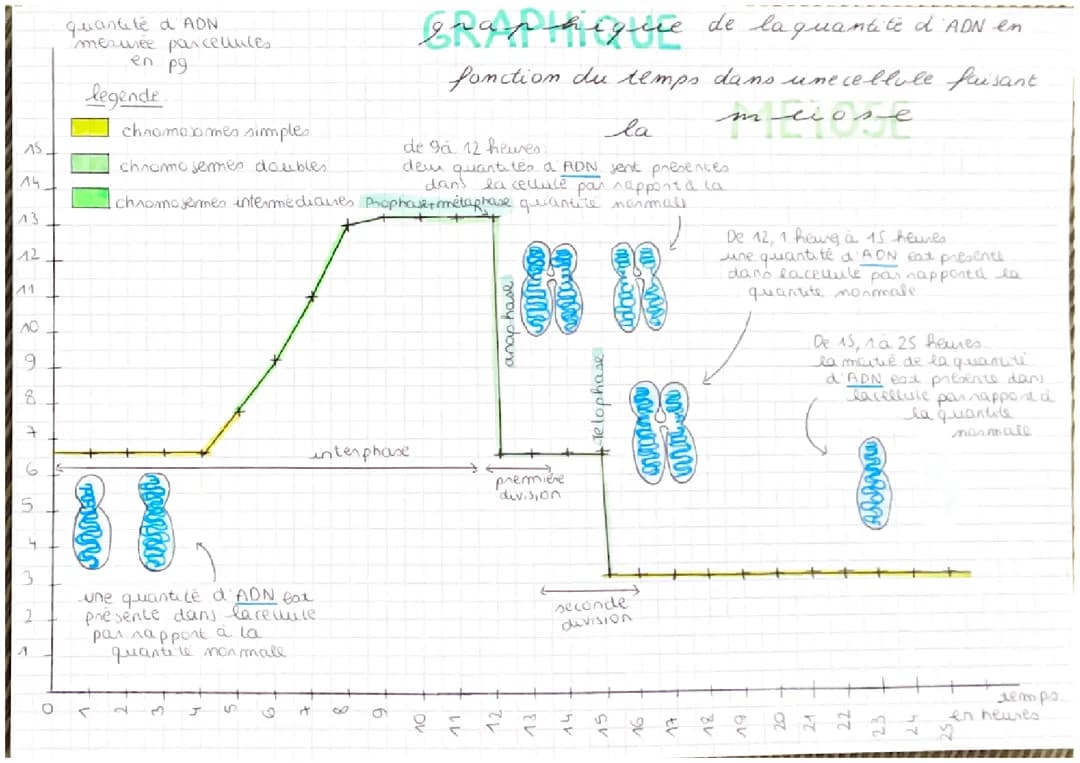 quantité d'ADN
mesurée par cellules
en pg
GRAPHIQUE
graphique de la quantité d'ADN en
fonction du temps dans une cellule faisant
la meiose
MEIOSE
légende
chromosomes simples
chromosomes doubles
chromosomes intermédiaires
de 9 à 12 heures
deux quantités d'ADN sont présentes
dans la cellule par rapport à la
quantité normale
Prophase + métaphase
De 12,1 heures à 15 heures
une quantité d'ADN est présente
dans la cellule par rapport à la
quantité normale
De 15,1 à 25 heures
la moitié de la quantité
d'ADN est présente dans
la cellule par rapport à
la quantité
normale
anaphase
Telophase
interphase
première
division
seconde
division
une quantité d'ADN est
présente dans la cellule
par rapport à la
quantité normale
15
14
13
12
11
10
9
8
7
6
5
4
3
2
1
0 1 2 3 4 5 6 7 8 9 10 11 12 13 14 15 16 17 18 19 20 21 22 23 24 25
temps
en heures